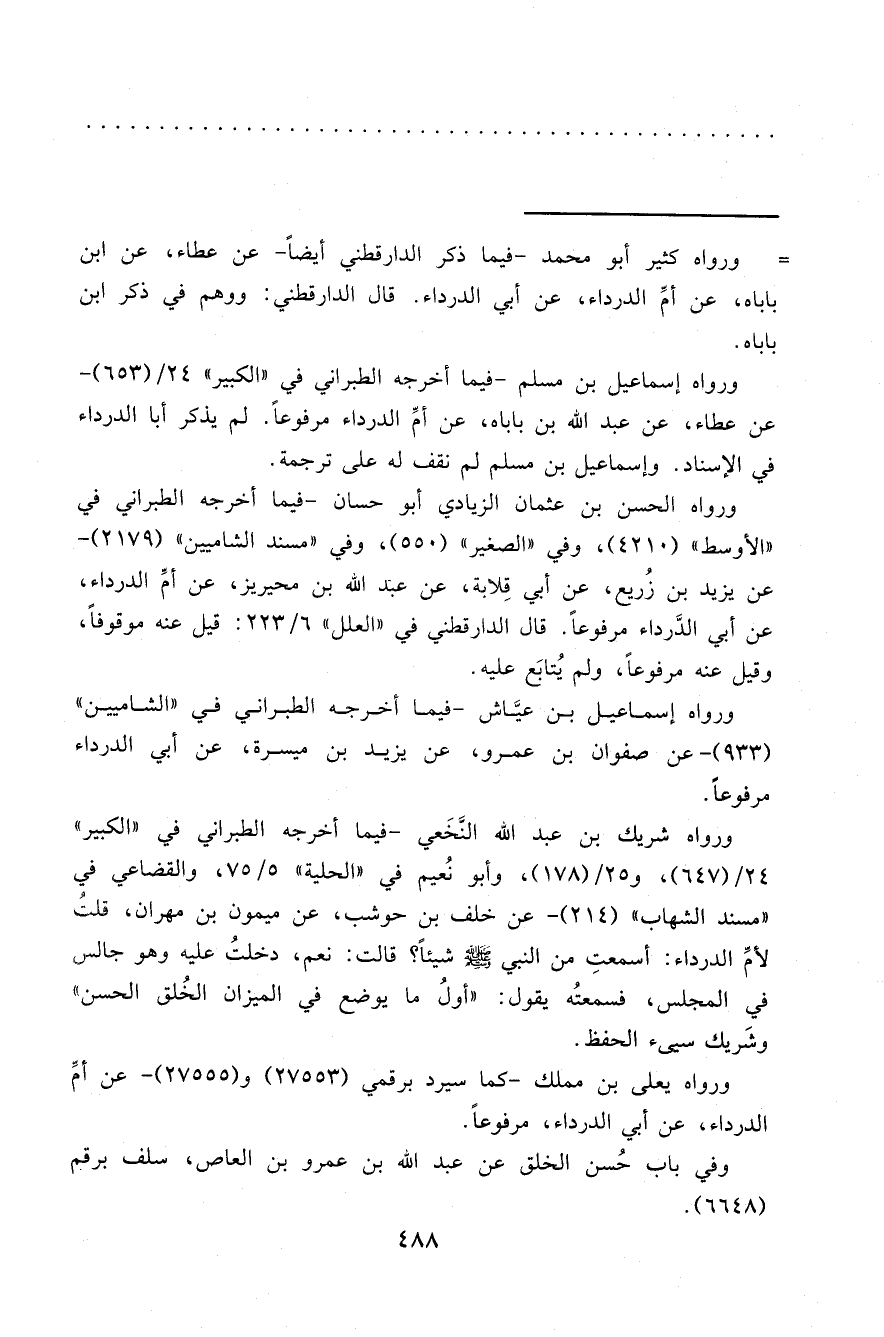 . . . . . . . . . . . . . . . . . . . . . . . . . . . . . . . . . . . . . . . . . . . . . . . .
= ورواه كثير أبو محمد -فيما ذكر الدارقطني أيضاً- عن عطاء، عن ابن
باباه، عن أمِّ الدرداء، عن أبي الدرداء. قال الدارقطني: ووهم في ذكر ابن
باباه.
ورواه إسماعيل بن مسلم -فيما أخرجه الطبراني في «الكبير» ٢٤/(٦٥٣)-
عن عطاء، عن عبد الله بن باباه، عن أمِّ الدرداء مرفوعاً. لم يذكر أبا الدرداء
في الإسناد. وإسماعيل بن مسلم لم نقف له على ترجمة.
ورواه الحسن بن عثمان الزيادي أبو حسان -فيما أخرجه الطبراني في
«الأوسط» (٤٢١٠)، وفي «الصغير» (٥٥٠)، وفي «مسند الشاميين» (٢١٧٩)-
عن يزيد بن زُريع، عن أبي قِلابة، عن عبد الله بن محيريز، عن أمِّ الدرداء،
عن أبي الدَّرداء مرفوعاً. قال الدارقطني في «العلل» ٢٢٣/٦: قيل عنه موقوفاً،
وقيل عنه مرفوعاً، ولم يُتابَع عليه.
ورواه إسماعيل بن عيَّاش -فيما أخرجه الطبراني في «الشاميين»
(٩٣٣)- عن صفوان بن عمرو، عن يزيد بن ميسرة، عن أبي الدرداء
مرفوعاً.
ورواه شريك بن عبد الله النَّخَعي -فيما أخرجه الطبراني في «الكبير»
٢٤/(٦٤٧)، و٢٥/(١٧٨)، وأبو نُعيم في «الحلية» ٧٥/٥، والقضاعي في
«مسند الشهاب» (٢١٤)- عن خلف بن حوشب، عن ميمون بن مهران، قلتُ
لأمِّ الدرداء: أسمعتِ من النبي ﷺ شيئاً؟ قالت: نعم، دخلتُ عليه وهو جالس
في المجلس، فسمعتُه يقول: «أولُ ما يوضع في الميزان الخُلق الحسن»
وشَريك سيىء الحفظ.
ورواه يعلى بن مملك -كما سيرد برقمي (٢٧٥٥٣) و(٢٧٥٥٥)- عن أمِّ
الدرداء، عن أبي الدرداء، مرفوعاً.
وفي باب حُسن الخلق عن عبد الله بن عمرو بن العاص، سلف برقم
(٦٦٤٨).
٤٨٨